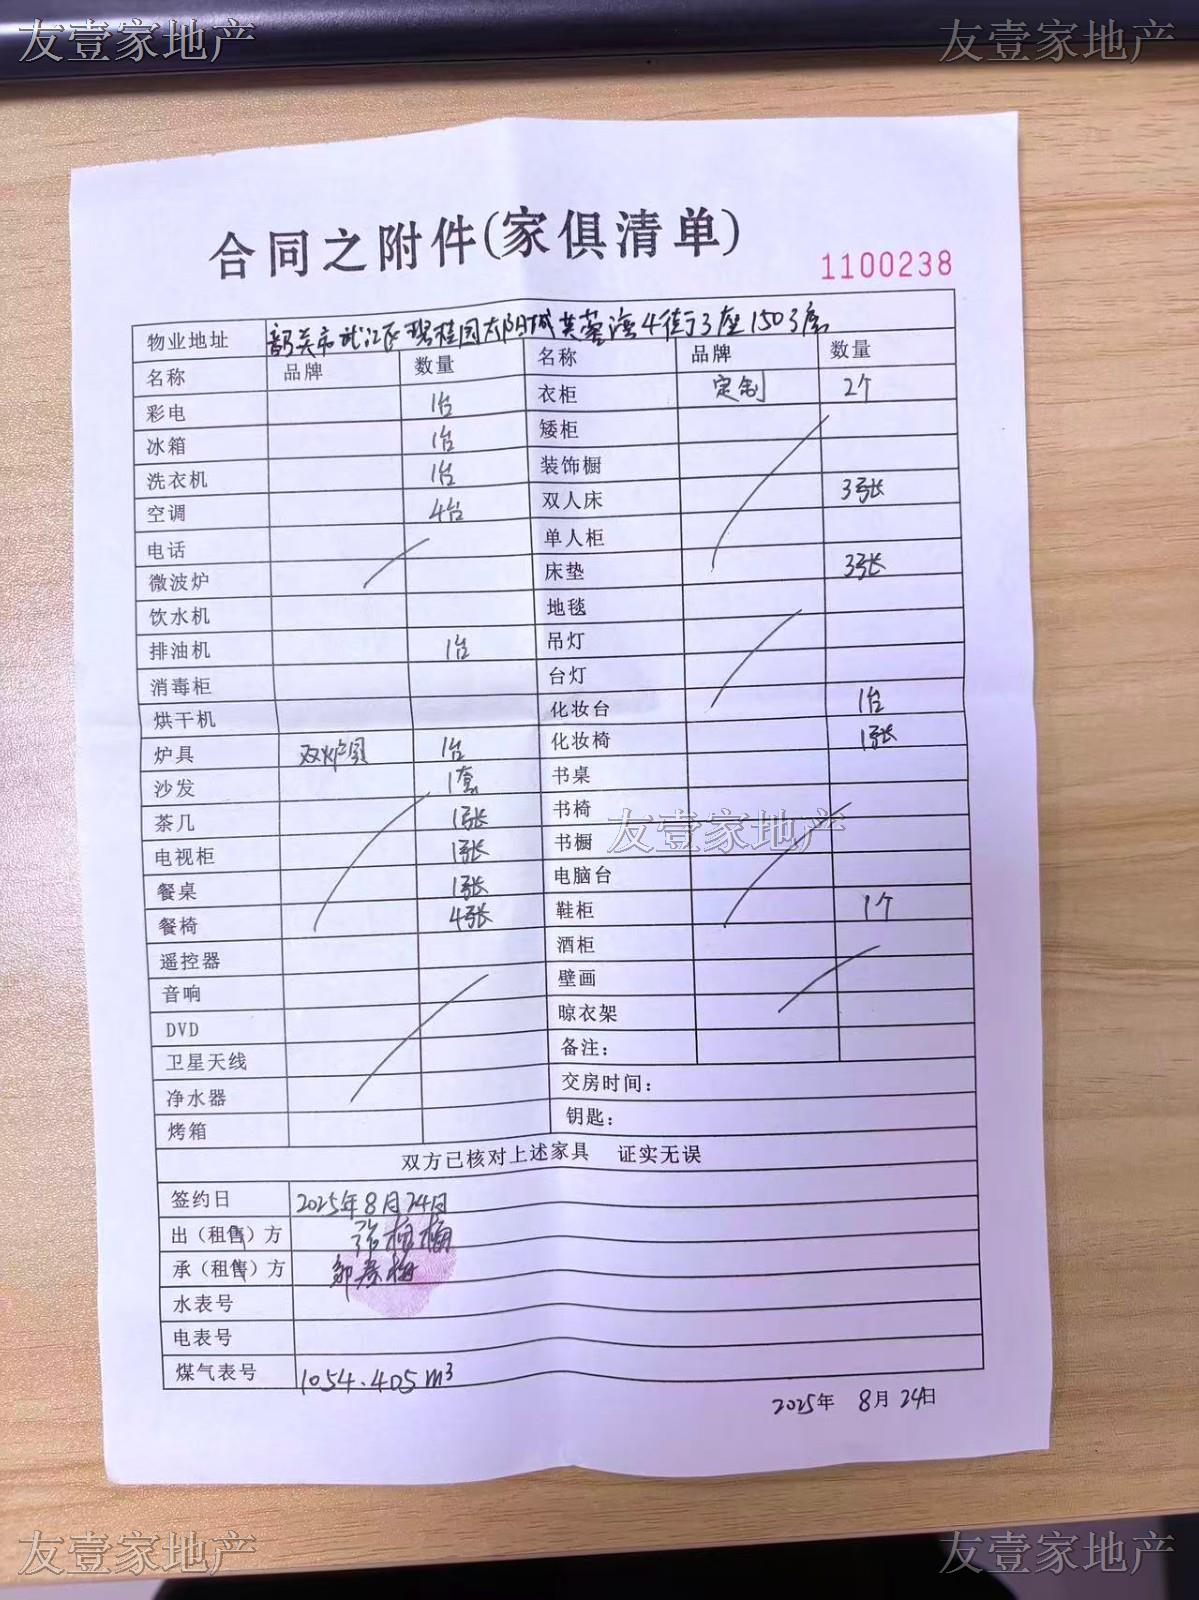 友壹家地产 友壹家地产
合同之附件(家俱清单)
1100238
物业地址 韶关市武江区碧桂园太阳城芙蓉湾4街3座1503房
名称 品牌 数量 名称 品牌 数量
彩电 1台 衣柜 定制 2个
冰箱 1台 矮柜
洗衣机 1台 装饰橱
空调 4台 双人床 3张
电话 单人柜
微波炉 床垫 3张
饮水机 地毯
排油机 1台 吊灯
消毒柜 台灯
烘干机 化妆台 1台
炉具 双炉具 1台 化妆椅 1张
沙发 1套 书桌
茶几 1张 书椅
友壹家地产
电视柜 1张 书橱
餐桌 1张 电脑台
餐椅 4张 鞋柜 1个
遥控器 酒柜
音响 壁画
DVD 晾衣架
卫星天线 备注：
净水器 交房时间：
烤箱 钥匙：
双方已核对上述家具 证实无误
签约日 2025年8月24日
出（租售）方 张桂梅
承（租售）方
水表号
电表号
煤气表号 1054.405m³
2025年 8月 24日
友壹家地产 友壹家地产